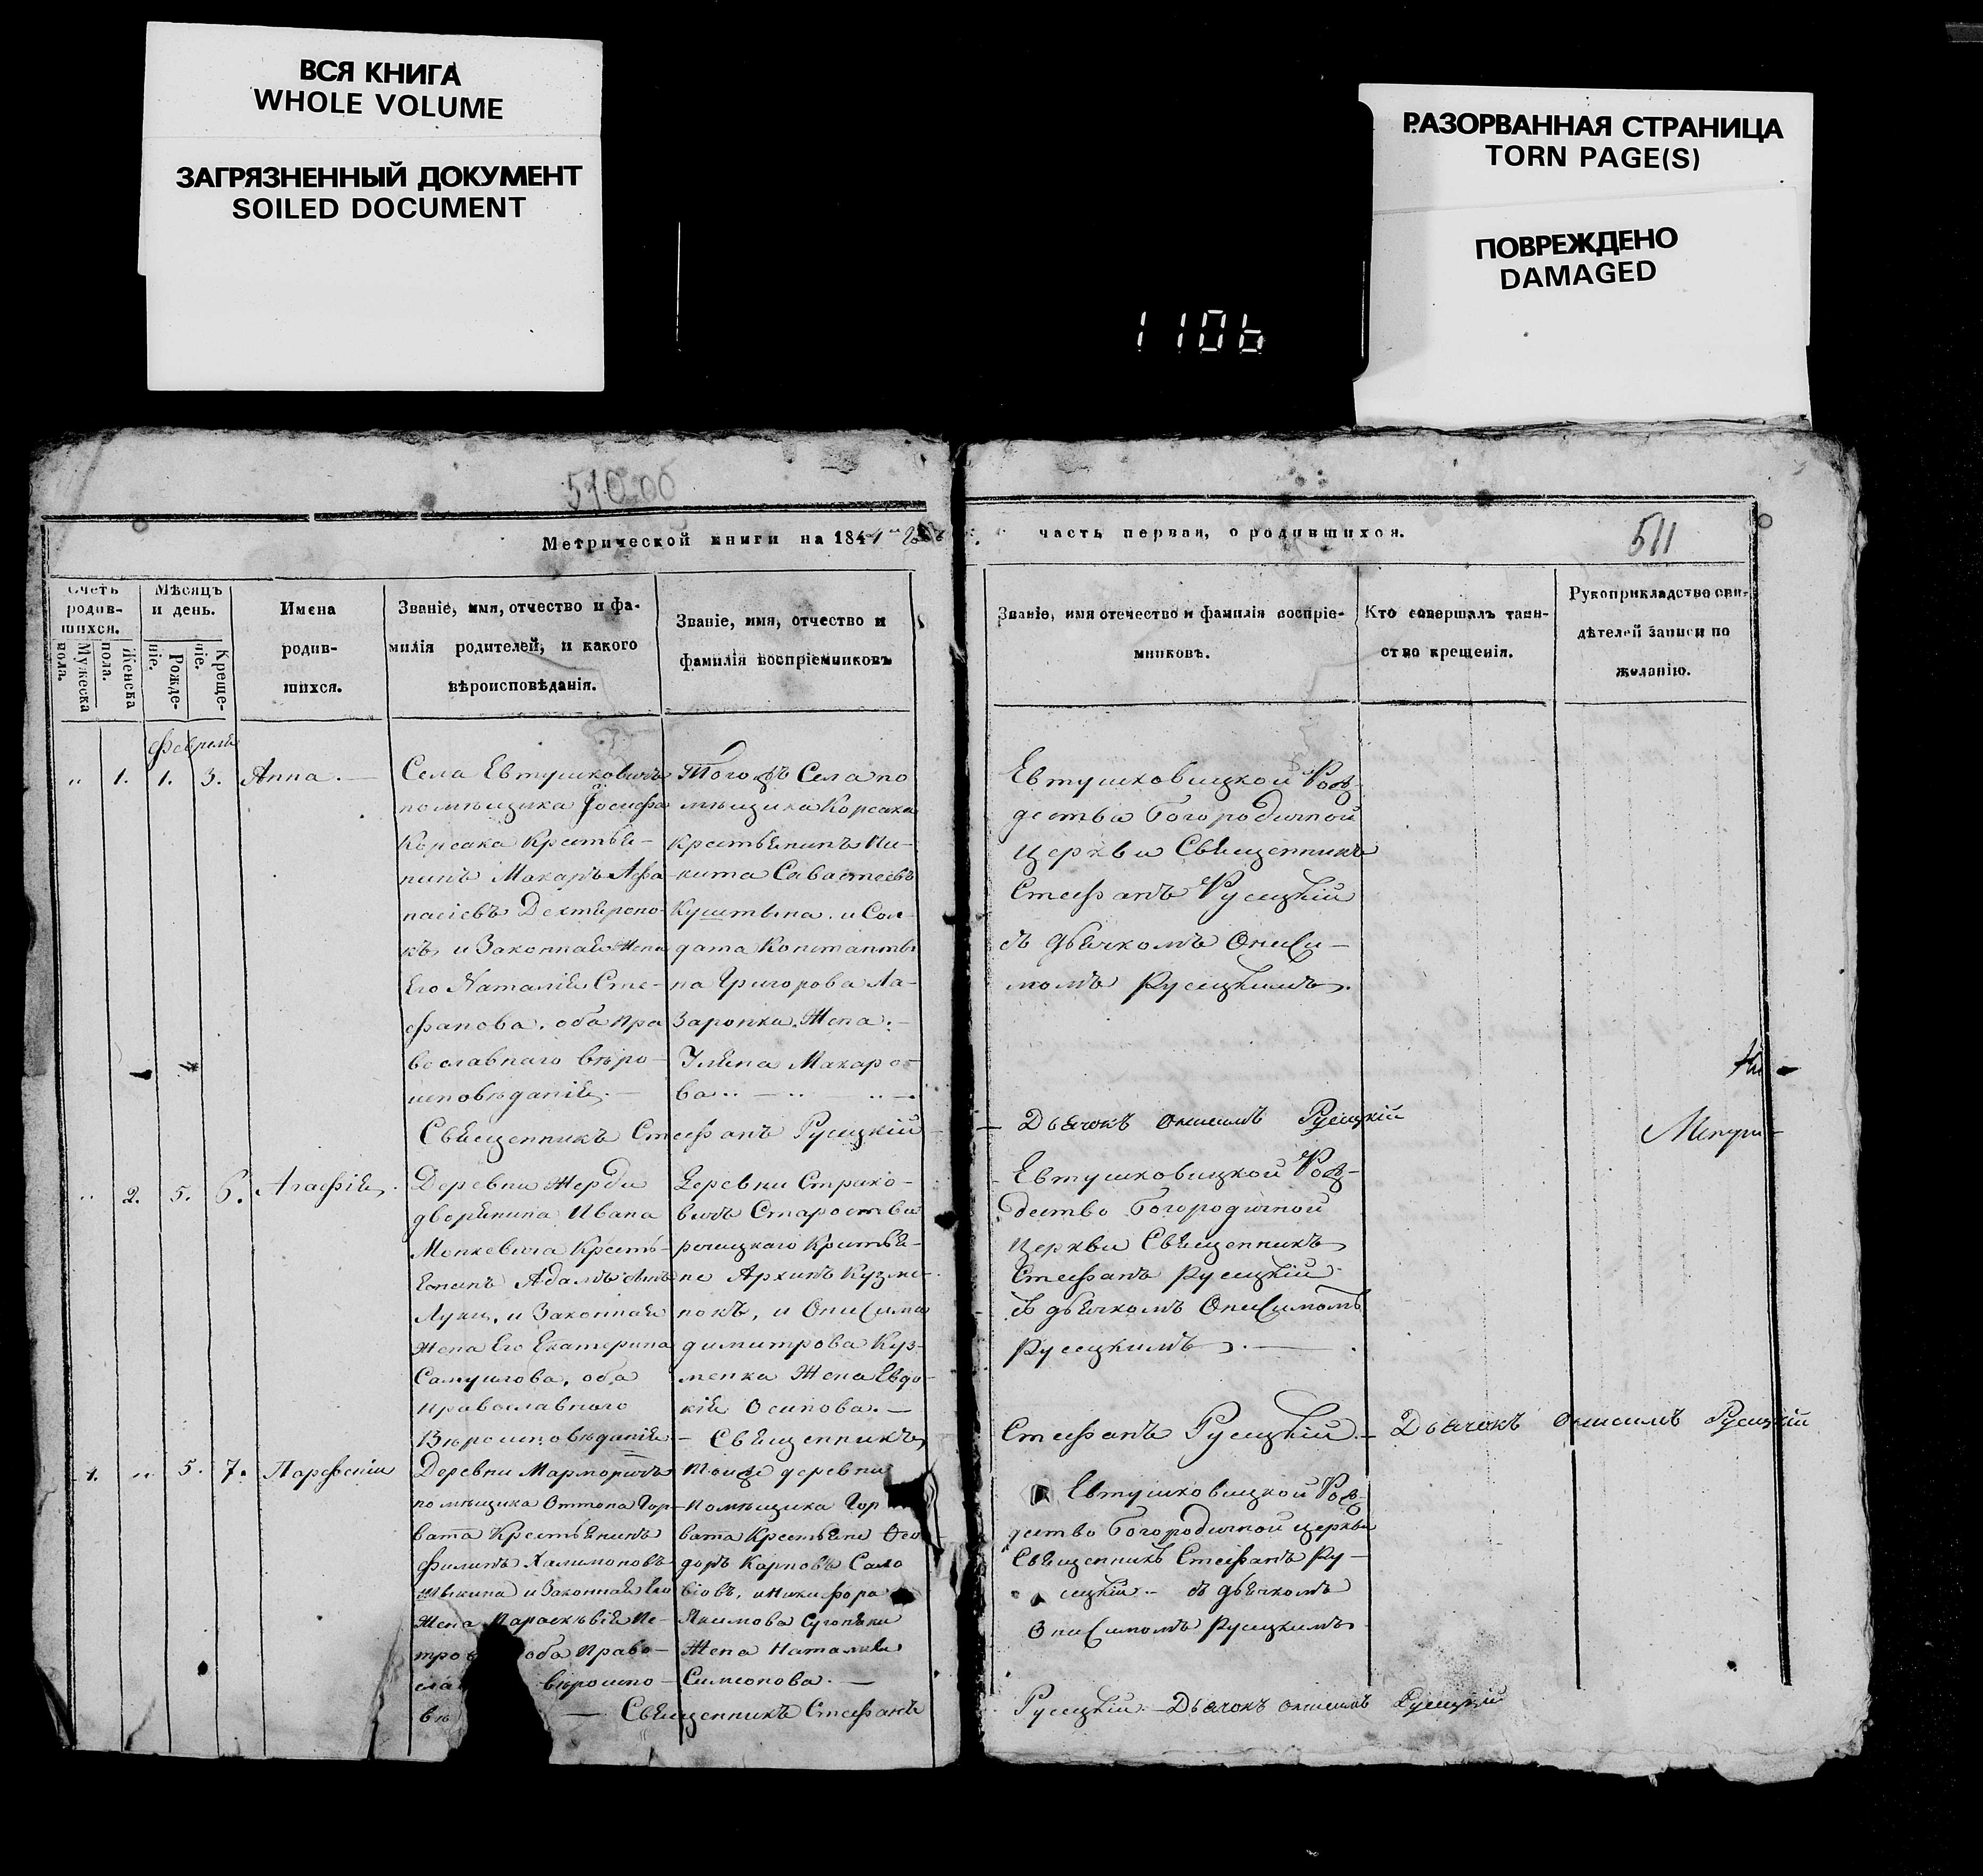 ВСЯ КНИГА
WHOLE VOLUME
ЗАГРЯЗНЕННЫЙ ДОКУМЕНТ
SOILED DOCUMENT
РАЗОРВАННАЯ СТРАНИЦА
TORN PAGE(S)
ПОВРЕЖДЕНО
DAMAGED
1106
510 об
Метрической книги на 184
часть первая, о родившихся.
511
Счетъ родив-шихся.
Мужеска пола.
Женска пола.
Мѣсяцъ и день.
Рожде-ніе.
Креще-ніе.
Имена
родив-
шихся.
Званіе, имя, отчество и фа-
милія родителей, и какого
вѣроисповѣданія.
Званіе, имя, отчество и
фамилія воспріемниковъ
Званіе, имя отечество и фамилія воспріе-
мниковъ.
Кто совершалъ таин-
ство крещенія.
Рукоприкладство сви-
дѣтелей записи по
желанію.
февраля
„ 1. 1. 3. Анна.
Села Евтушковичъ
помѣщика Іосифа
Корсака Крестья-
нинъ Макаръ Афа-
насіевъ
къ и Законная Жена
Его Наталія Сте-
фанова, оба Пра
вославнаго вѣро-
исповѣданія.
Тогожъ Села по
мѣщика Корсака
крестьянинъ Ни-
кита Савастеевъ
и Сол-
дата Константи
на Григорова Ла-
заронки Жена.
Уляна Макаро-
ва
Священникъ Стефанъ Русецкій
Евтушковицкой Рож-
дества Богородичной
Церкви Священникъ
Стефанъ Русецкій
съ дьячкомъ Ониси-
момъ Русецкимъ.
Дьячокъ Онисимъ Русецкій
„ 2. 5. 6. Агафія.
Деревни Жерди
дворянина Ивана
Монкевича Кресть-
Адамъ
Луки, и Законная
жена Его Екатерина
Самуилова, оба
Православнаго
Вѣроисповѣданія
Деревни Страко-
вичъ Староства
речицкаго Крестья-
не Архипъ Кузме-
нокъ, и Онисима
димитрова Куз-
менка Жена Евдо-
кія Осипова.
Священникъ
Евтушковицкой Рож-
дество Богородичной
Церкви Священникъ
Стефанъ Русецкій
съ дьячкомъ Онисимомъ
Русецкимъ.
Стефанъ Русецкій Дьячокъ Онисимъ Русецкій
1. „ 5. 7. Парфеній
Деревни Марморичъ
помѣщика Оттона Гор-
вата Крестьянинъ
Филипъ Халимоновъ
и Законная Его
Жена Параскѣвія Пе-
тро оба Право-
сла вѣроиспо-
вѣ
тойже деревни
помѣщика Гор
вата Крестьяне Ѳео
доръ Карповъ Само
и Никифора
Якимова
Жена Наталія
Симеонова.
Священникъ Стефанъ
Евтушковицкой Рож-
дество Богородичной церкви
Священникъ Стефанъ Ру-
сецкій съ дьячкомъ
Онисимомъ Русецкимъ
Русецкій Дьячокъ Онисимъ Русецкій